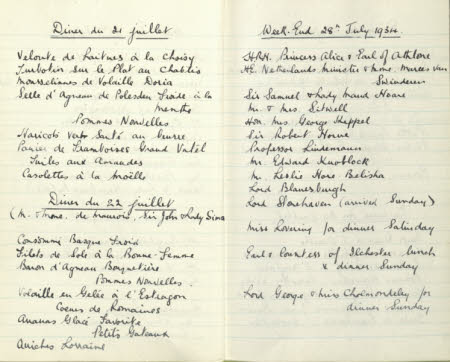 Diner du 21 juillet
Veloute de Laitues à la Choisy
Turbotin sur le Plat au Chablis
Mousselines de Volaille Doria
Selle d'Agneau de Polesden Froide à la
Menthe
Pommes Nouvelles
Haricots Verts Sauté au beurre
Panier de Framboises Grand Vatel
Tuiles aux Amandes
Carolettes à la Moëlle
Diner du 22 juillet
(M. & Mme. de Maurois, Sir John & Lady Simon
Consommé Basque Froid
Filets de Sole à la Bonne-Femme
Baron d'Agneau Bouquetière
Pommes Nouvelles.
Volaille en Gelée à l'Estragon
Coeurs de Romaines
Ananas Glacé Favorite
Petits Gateaux
Anchois Lorraine
Week-End 28th July 1934.
H.R.H. Princess Alice & Earl of Athlone
The Netherlands Minister & Mme. Marees van
Swinderen
Sir Samuel & Lady Maud Hoare
Mr. & Mrs. Sitwell
Hon. Mrs. George Keppel
Sir Robert Horne
Professor Lindemann
Mr. Edward Knoblock
Mr. Leslie Hore Belisha
Lord Blanesburgh
Lord Stonehaven (arrived Sunday)
Miss Lovering for dinner Saturday
Earl & Countess of Ilchester lunch
& dinner Sunday
Lord George & Miss Cholmondeley for
dinner Sunday